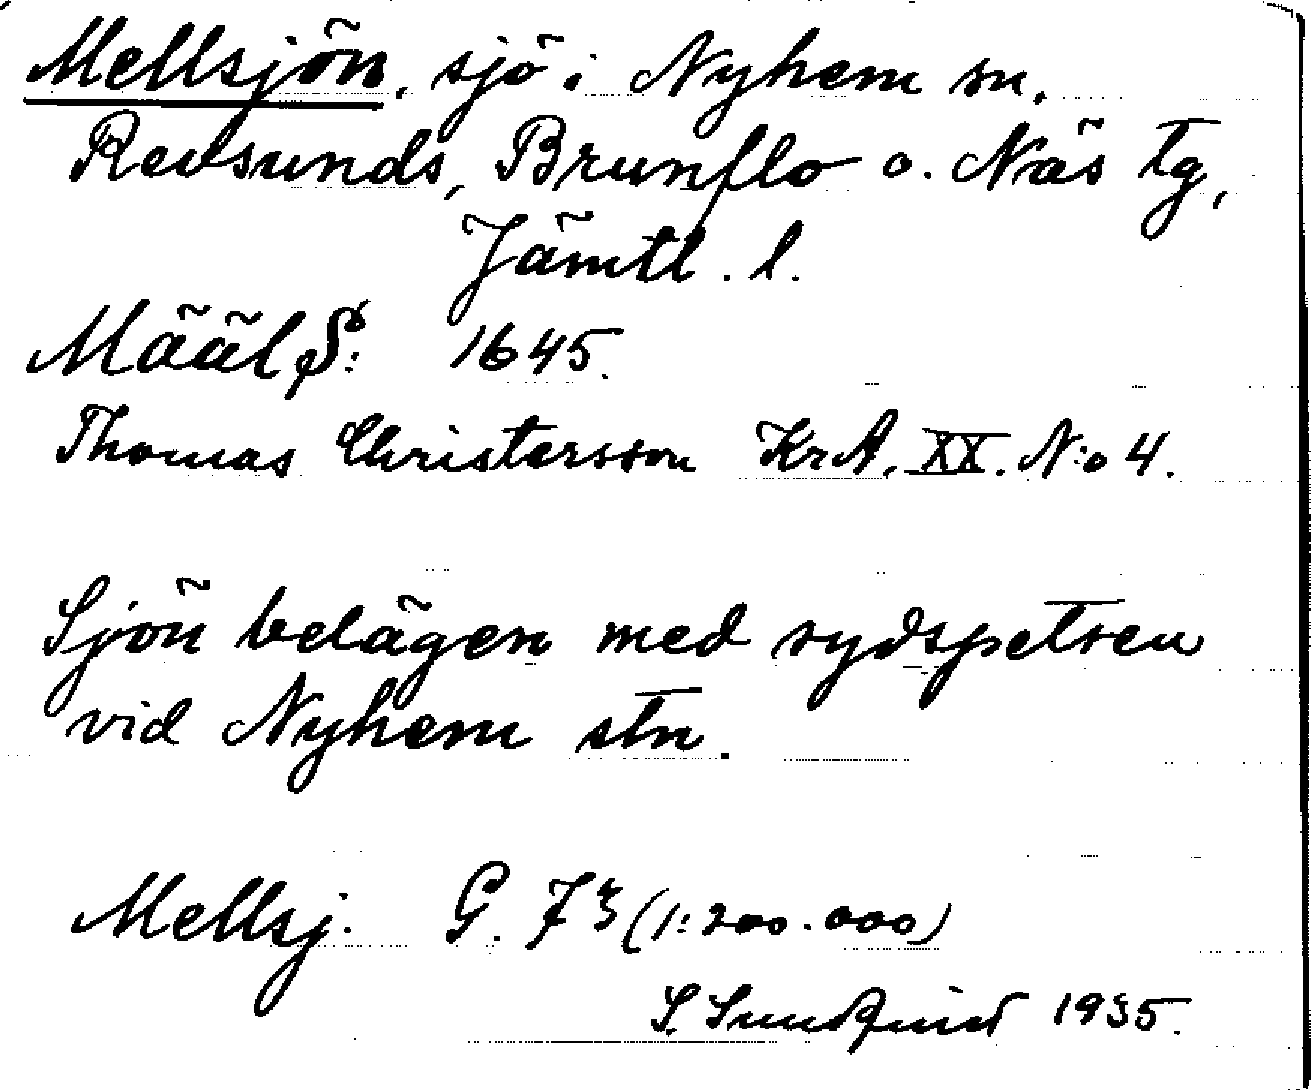 Mellsjön, sjö i Nyhem sn.
Revsunds, Brunflo o. Näs tg,
Jämtl. l.
Määl S: 1645.
Thomas Christersson KrA, XX. N:o 4.
Sjön belägen med sydspetsen
vid Nyhem stn.
Mellsj. G. 73 (1:200.000)
S. Sundquist 1935.